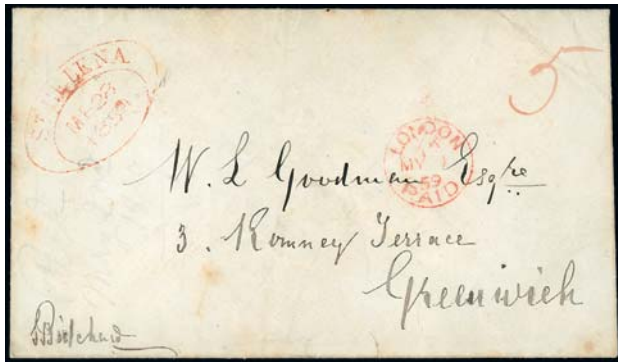 ST HELENA
MR 28
1859
5
LONDON
MY
59
PAID
W. L Goodman Esqre
3. Romney Terrace
Greenwich